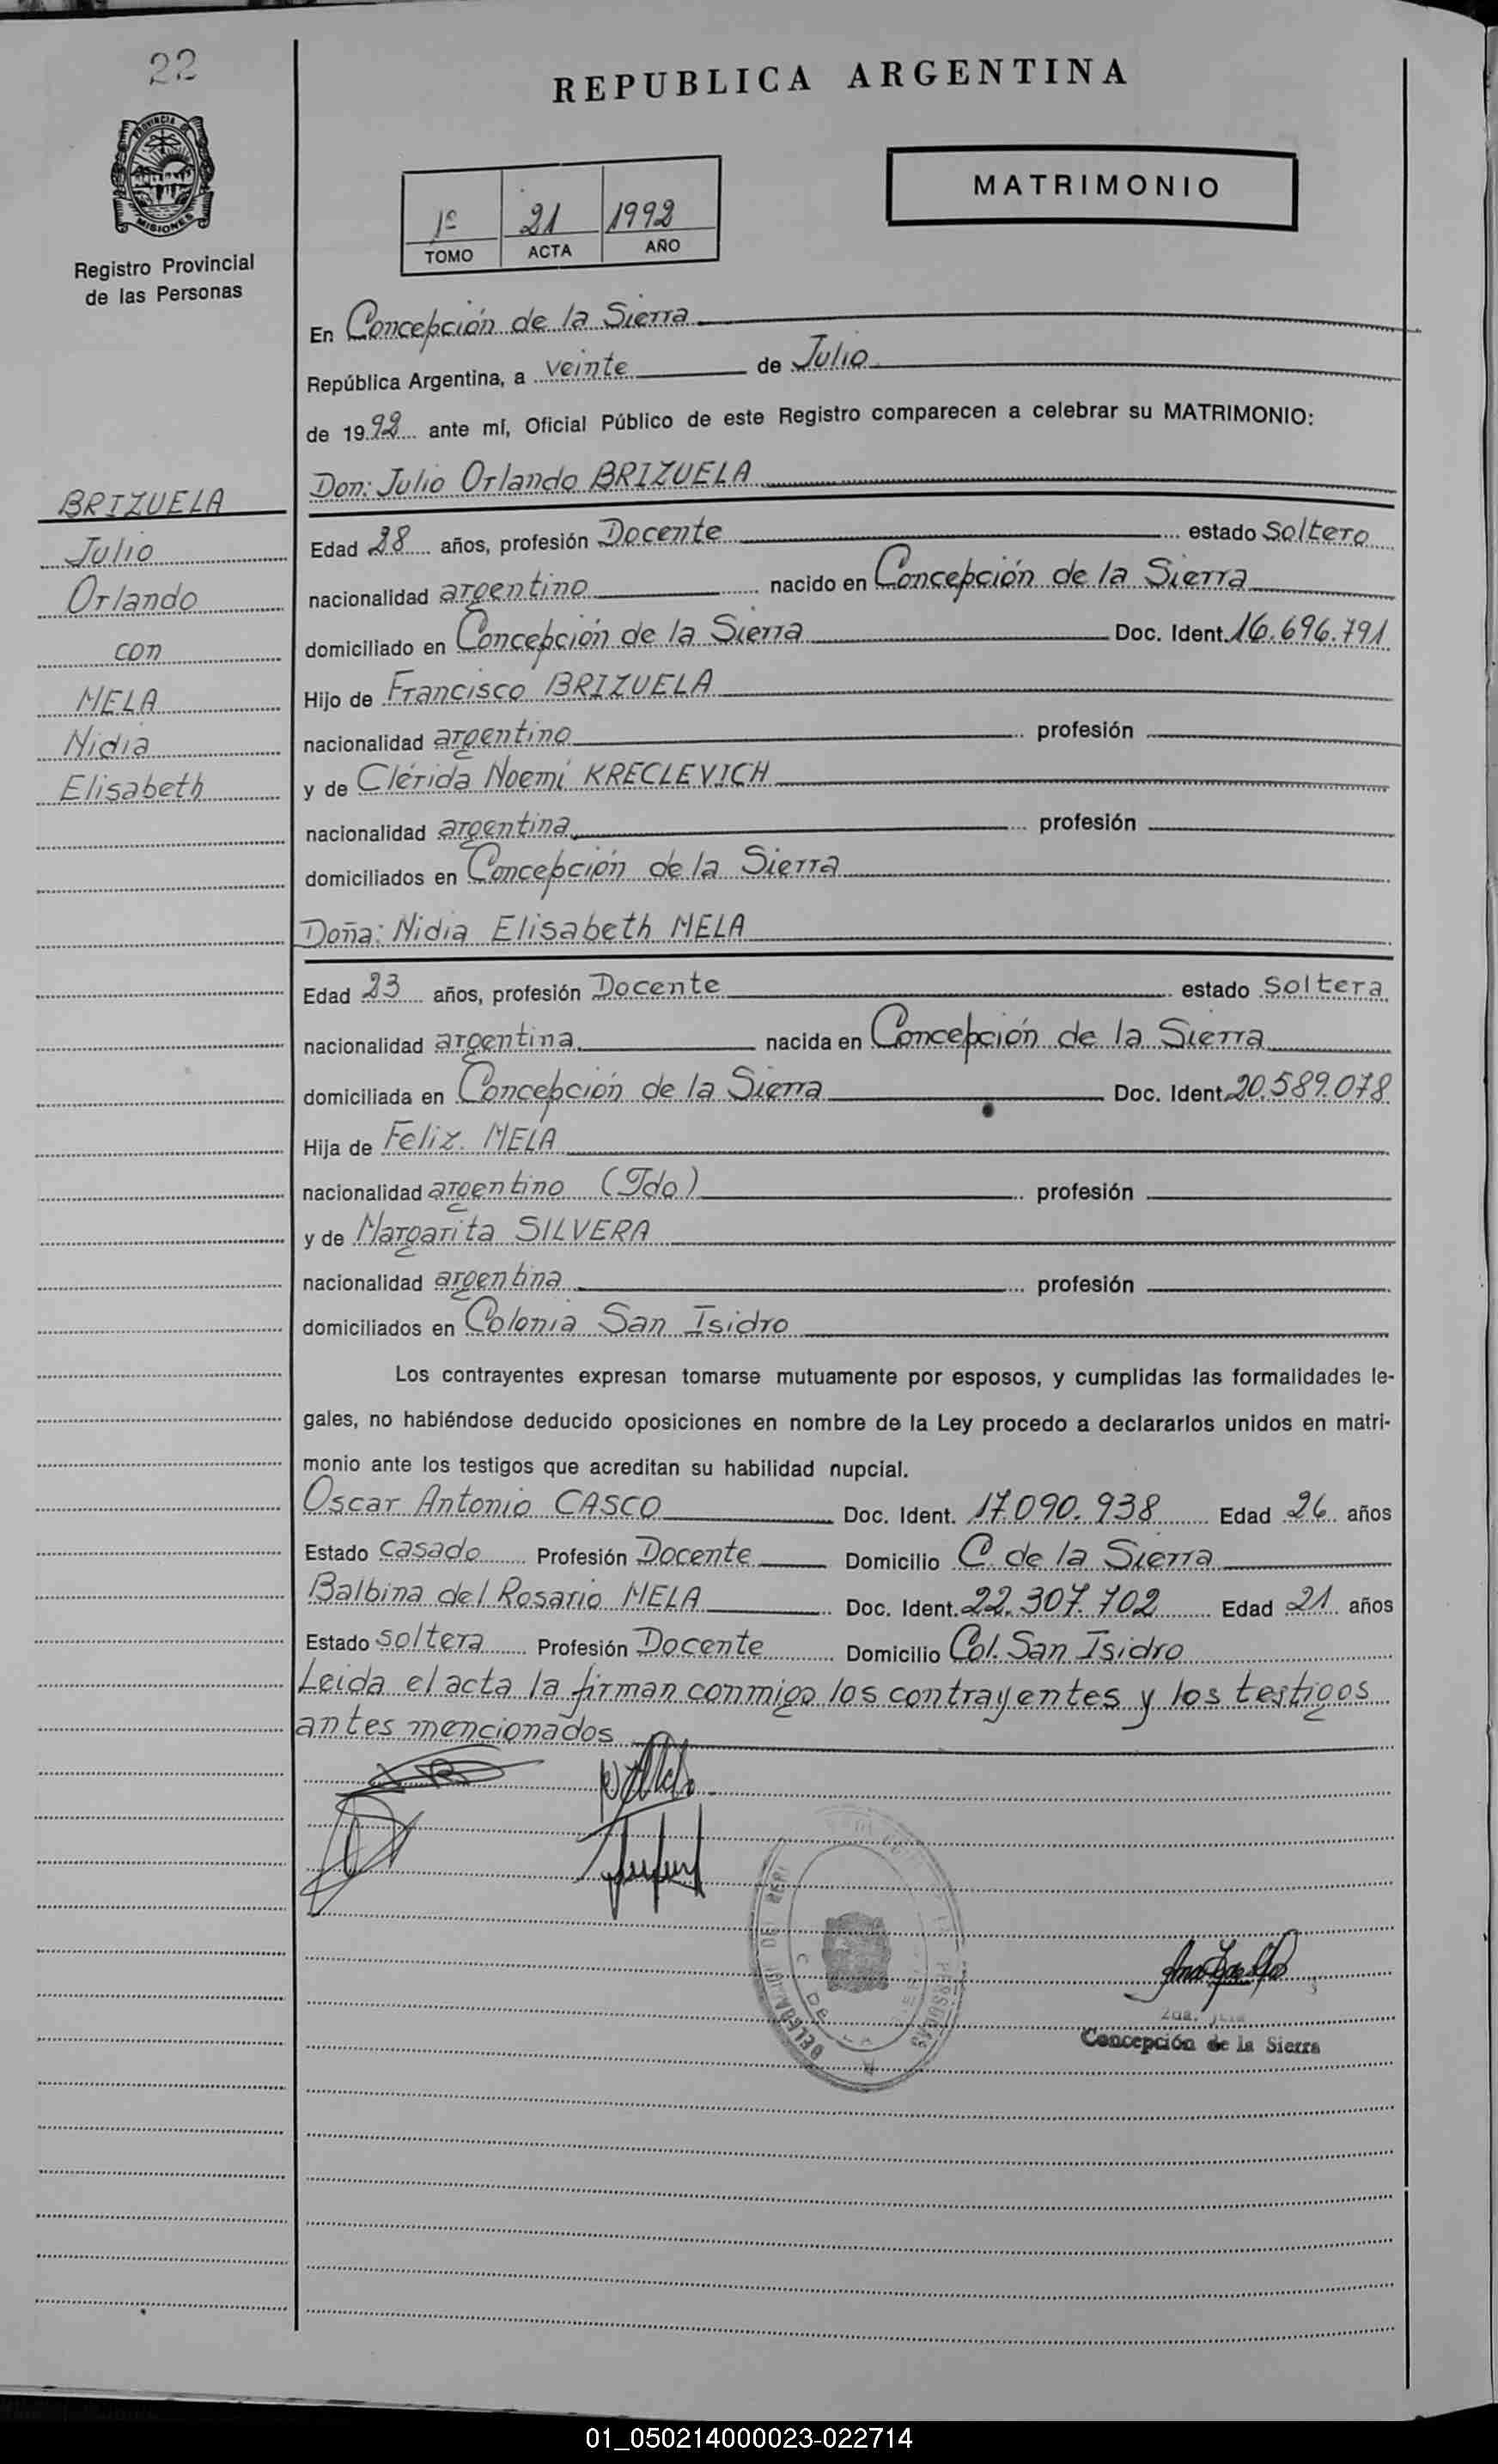 22
REPUBLICA ARGENTINA
PROVINCIA DE
MISIONES
Registro Provincial
de las Personas
MATRIMONIO
1º 21 1992
TOMO ACTA AÑO
En Concepción de la Sierra
República Argentina, a veinte de Julio
de 1992 ante mí, Oficial Público de este Registro comparecen a celebrar su MATRIMONIO:
BRIZUELA
Julio
Orlando
con
MELA
Nidia
Elisabeth
Don: Julio Orlando BRIZUELA
Edad 28 años, profesión Docente estado Soltero
nacionalidad argentino nacido en Concepción de la Sierra
domiciliado en Concepción de la Sierra Doc. Ident. 16.696.791
Hijo de Francisco BRIZUELA
nacionalidad argentino profesión
y de Clérida Noemí KRECLEVICH
nacionalidad argentina profesión
domiciliados en Concepción de la Sierra
Doña: Nidia Elisabeth MELA
Edad 23 años, profesión Docente estado Soltera
nacionalidad argentina nacida en Concepción de la Sierra
domiciliada en Concepción de la Sierra Doc. Ident. 20.589.078
Hija de Feliz MELA
nacionalidad argentino (Fdo) profesión
y de Margarita SILVERA
nacionalidad argentina profesión
domiciliados en Colonia San Isidro
Los contrayentes expresan tomarse mutuamente por esposos, y cumplidas las formalidades le-
gales, no habiéndose deducido oposiciones en nombre de la Ley procedo a declararlos unidos en matri-
monio ante los testigos que acreditan su habilidad nupcial.
Oscar Antonio CASCO Doc. Ident. 17.090.938 Edad 26 años
Estado casado Profesión Docente Domicilio C. de la Sierra
Balbina del Rosario MELA Doc. Ident. 22.307.702 Edad 21 años
Estado soltera Profesión Docente Domicilio Col. San Isidro
Leida el acta la firman conmigo los contrayentes y los testigos
antes mencionados
DE LA
PERSONAS
Concepción de la Sierra
01_050214000023-022714